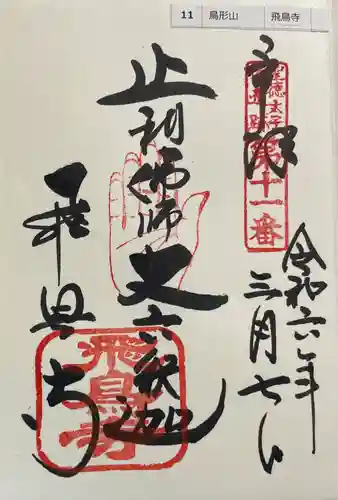 11 鳥形山 飛鳥寺
奉拝
聖徳太子
第十一番
令和六年
三月七日
止利佛師丈六釈迦
飛鳥寺
飛鳥寺